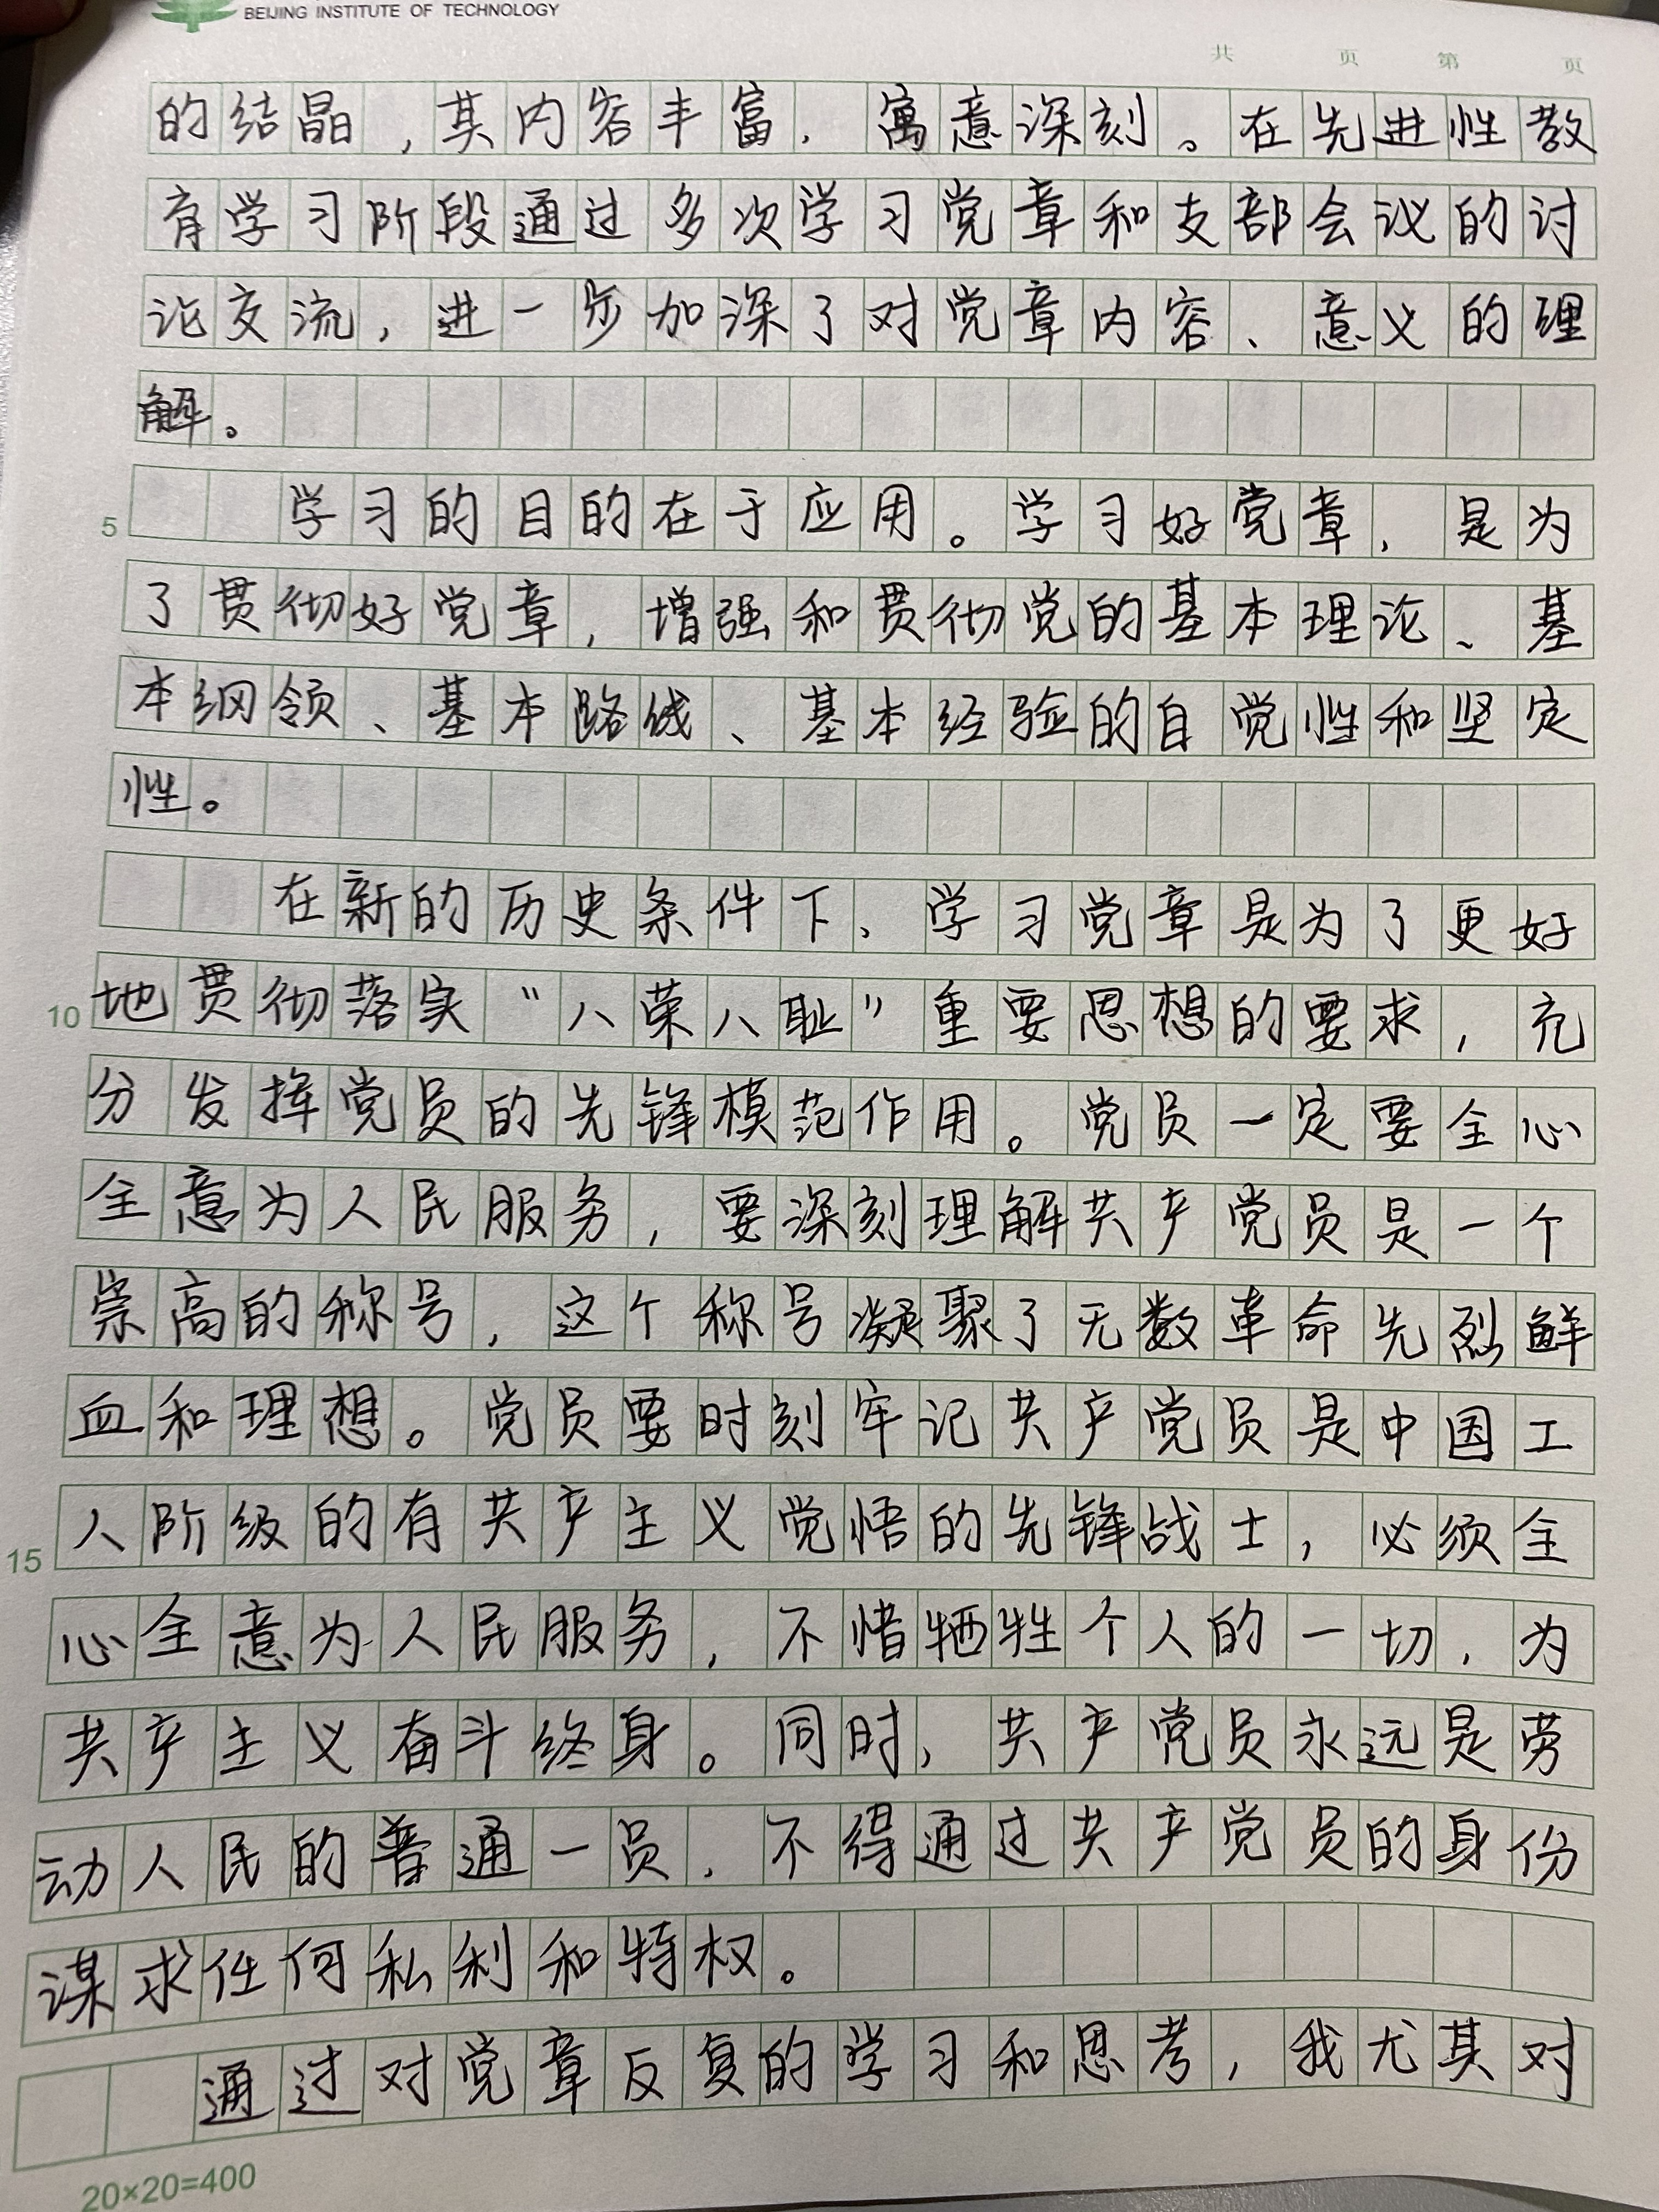 BEIJING INSTITUTE OF TECHNOLOGY
共 页 第 页
的结晶,其内容丰富,寓意深刻。在先进性教
育学习阶段通过多次学习党章和支部会议的讨
论交流,进一步加深了对党章内容、意义的理
解。
5 学习的目的在于应用。学习好党章,是为
了贯彻好党章,增强和贯彻党的基本理论、基
本纲领、基本路线、基本经验的自觉性和坚定
性。
在新的历史条件下、学习党章是为了更好
10 地贯彻落实“八荣八耻”重要思想的要求,充
分发挥党员的先锋模范作用。党员一定要全心
全意为人民服务,要深刻理解共产党员是一个
崇高的称号,这个称号凝聚了无数革命先烈鲜
血和理想。党员要时刻牢记共产党员是中国工
15 人阶级的有共产主义觉悟的先锋战士,必须全
心全意为人民服务,不惜牺牲个人的一切,为
共产主义奋斗终身。同时,共产党员永远是劳
动人民的普通一员,不得通过共产党员的身份
谋求任何私利和特权。
通过对党章反复的学习和思考,我尤其对
20×20=400